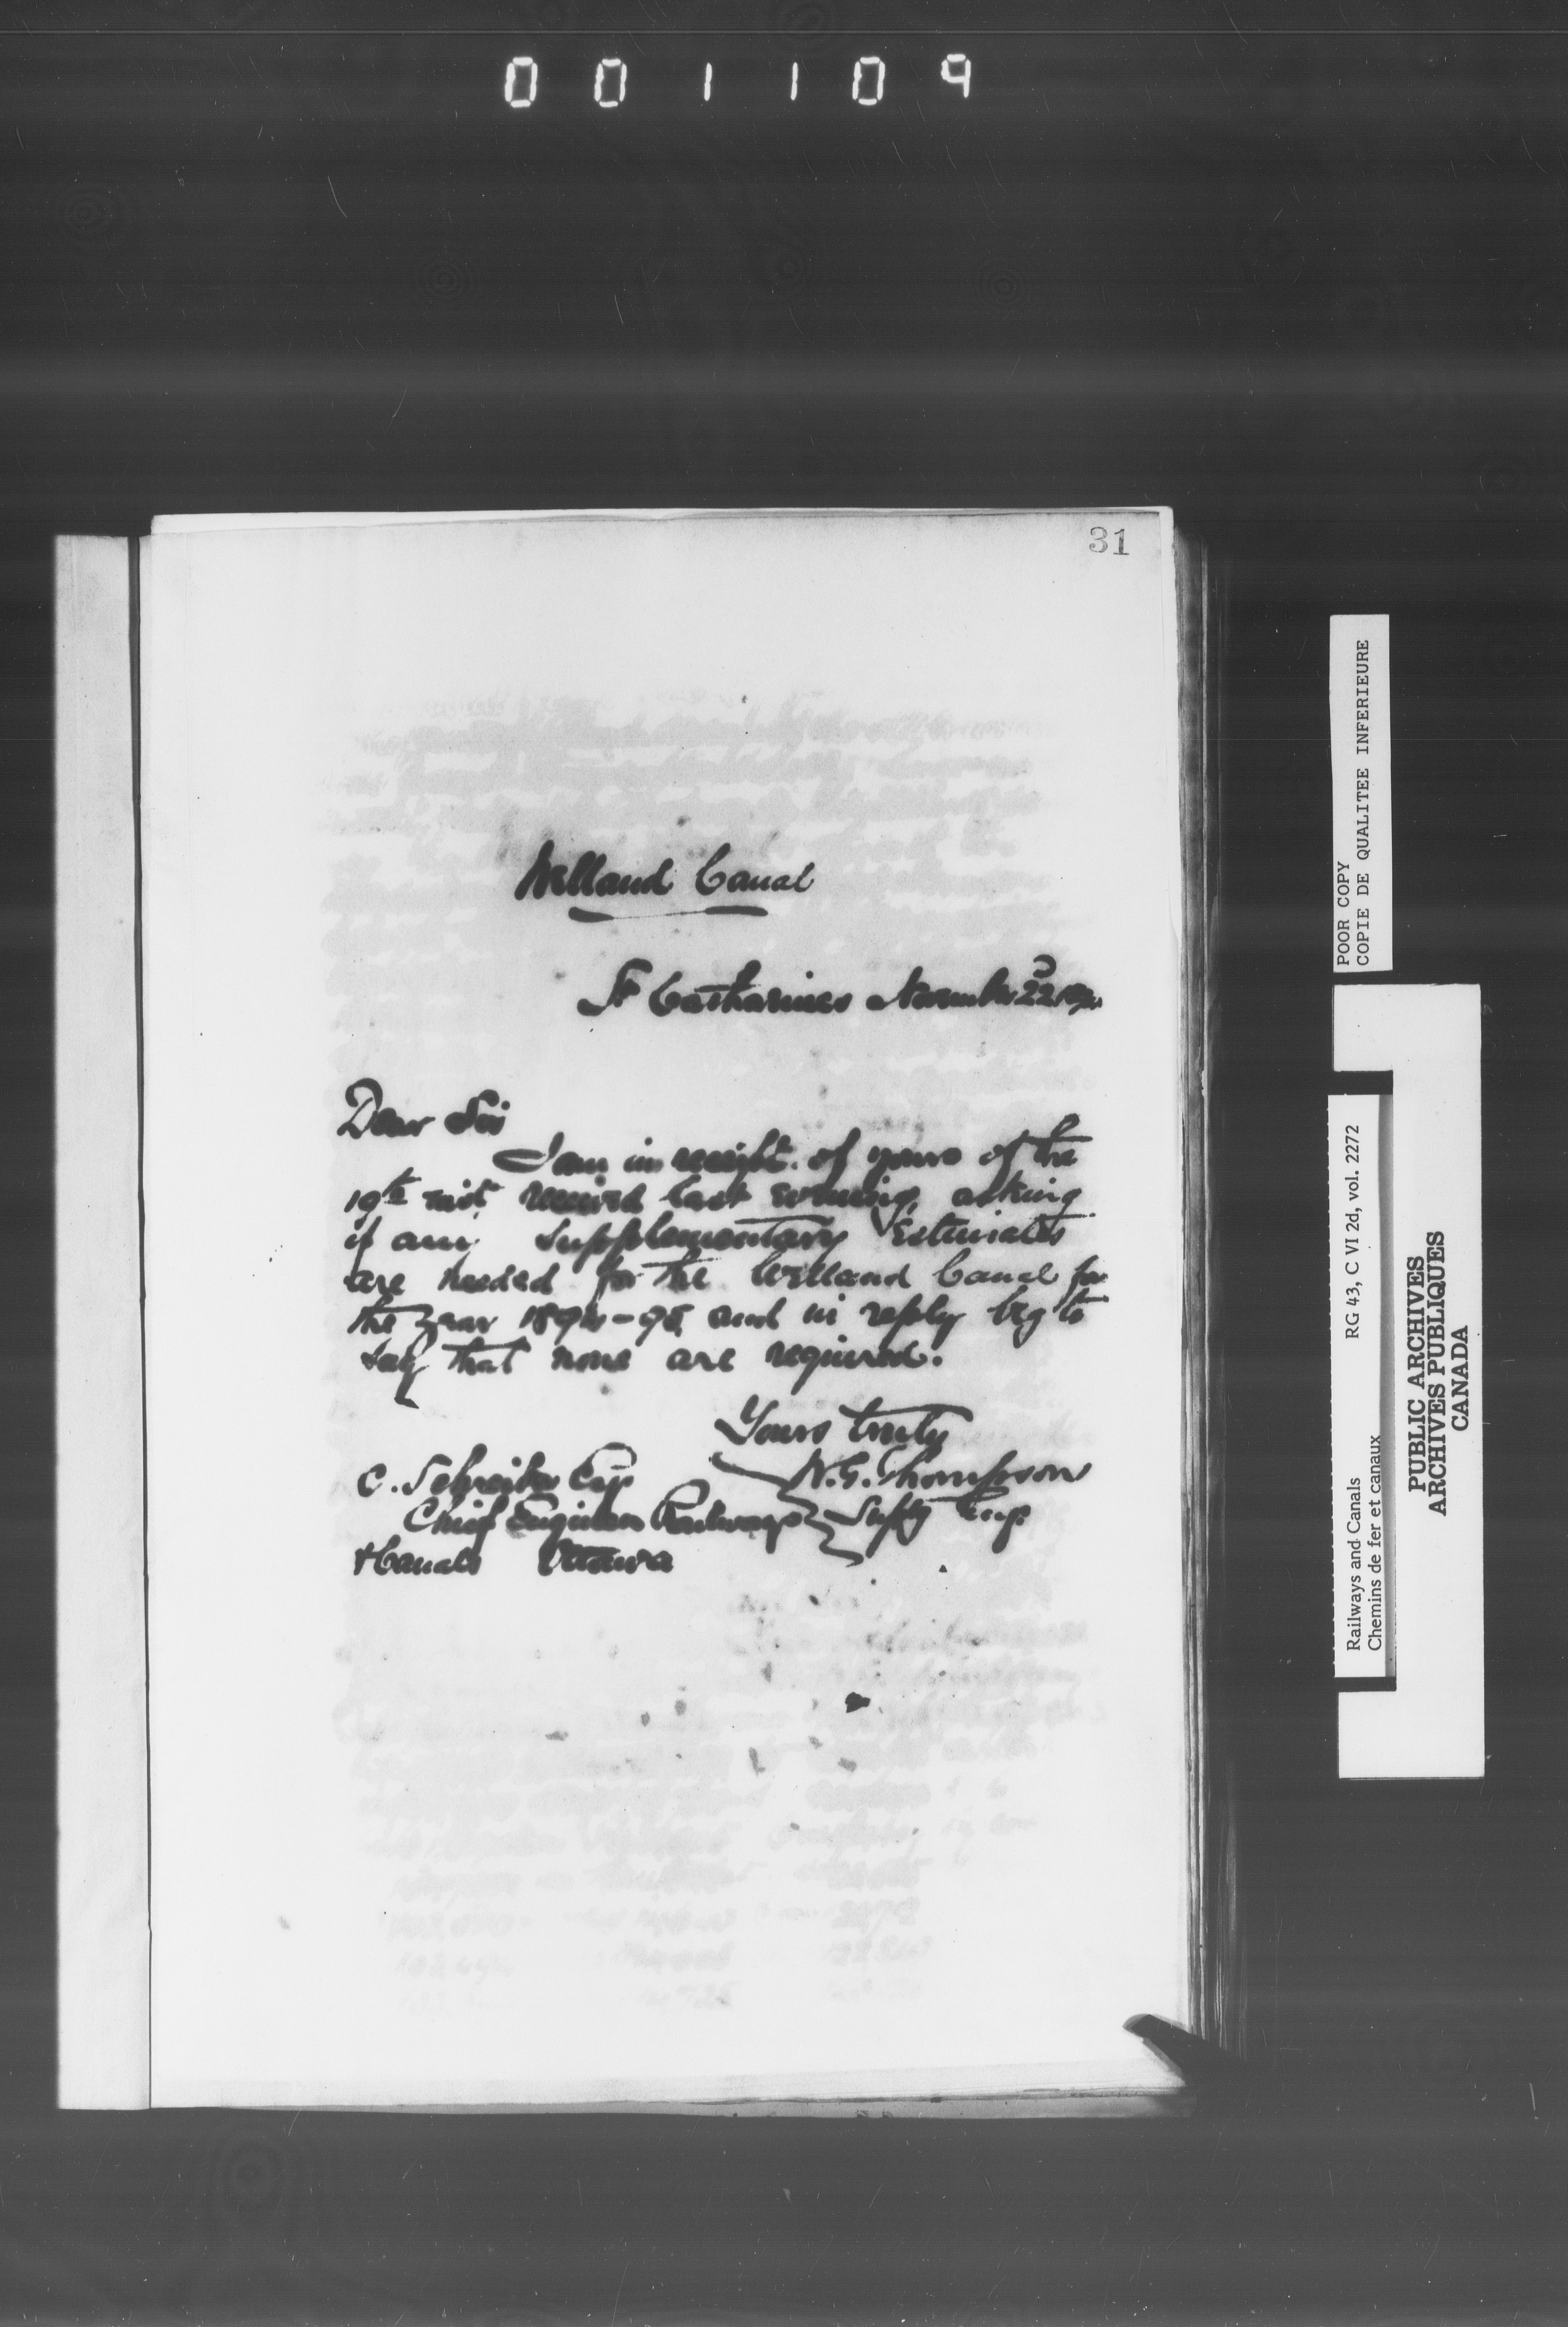 001109
31
Welland Canal
St Catharines November 22
Dear Sir
I am in receipt of yours of the
19th inst received last evening, asking
if any Supplementary Estimates
are needed for the Welland Canal for
the year 1894-95 and in reply beg to
say that none are required.
Yours truly
W.G. Thompson
Supty Eng.
C. Schreiber Esq
Chief Engineer Railways
& Canals Ottawa
POOR COPY
COPIE DE QUALITEE INFERIEURE
Railways and Canals RG 43, C VI 2d, vol. 2272
Chemins de fer et canaux
PUBLIC ARCHIVES
ARCHIVES PUBLIQUES
CANADA